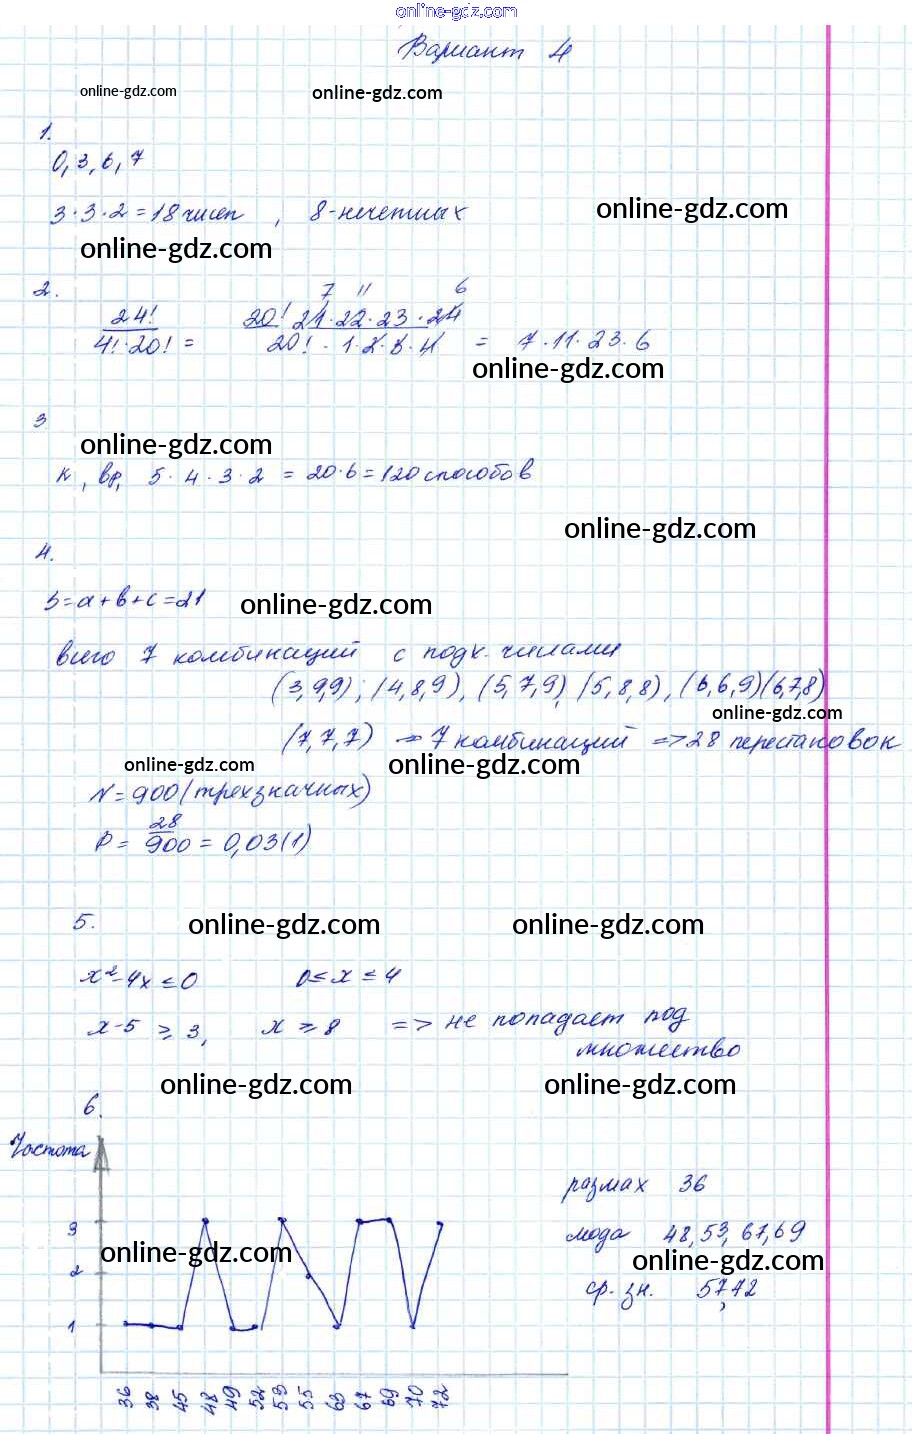 online-gdz.com
Вариант 4
online-gdz.com online-gdz.com
1.
0, 3, 6, 7
3·3·2 = 18 чисел , 8-нечетных online-gdz.com
online-gdz.com
2. 7 11 6
24! 20! 21·22·23·24
4!·20! = 20! · 1·2·3·4 = 7·11·23·6
online-gdz.com
3
online-gdz.com
к, вр, 5·4·3·2 = 20·6 = 120 способов
online-gdz.com
4.
S=a+b+c=21 online-gdz.com
всего 7 комбинаций с подх. числами
(3,9,9); (4,8,9), (5,7,9) (5,8,8), (6,6,9) (6,7,8)
online-gdz.com
(7,7,7) => 7 комбинаций => 28 перестановок
online-gdz.com online-gdz.com
N = 900 (трехзначных)
P = 28/900 = 0,03(1)
5. online-gdz.com online-gdz.com
x²-4x ≤ 0 0 ≤ x ≤ 4
x-5 ≥ 3, x ≥ 8 => не попадает под
множество
online-gdz.com online-gdz.com
6.
Частота
размах 36
3
мода 48, 53, 67, 69
online-gdz.com online-gdz.com
2
ср. зн. 57,12
1
36 38 45 48 49 52 53 55 63 67 69 70 72